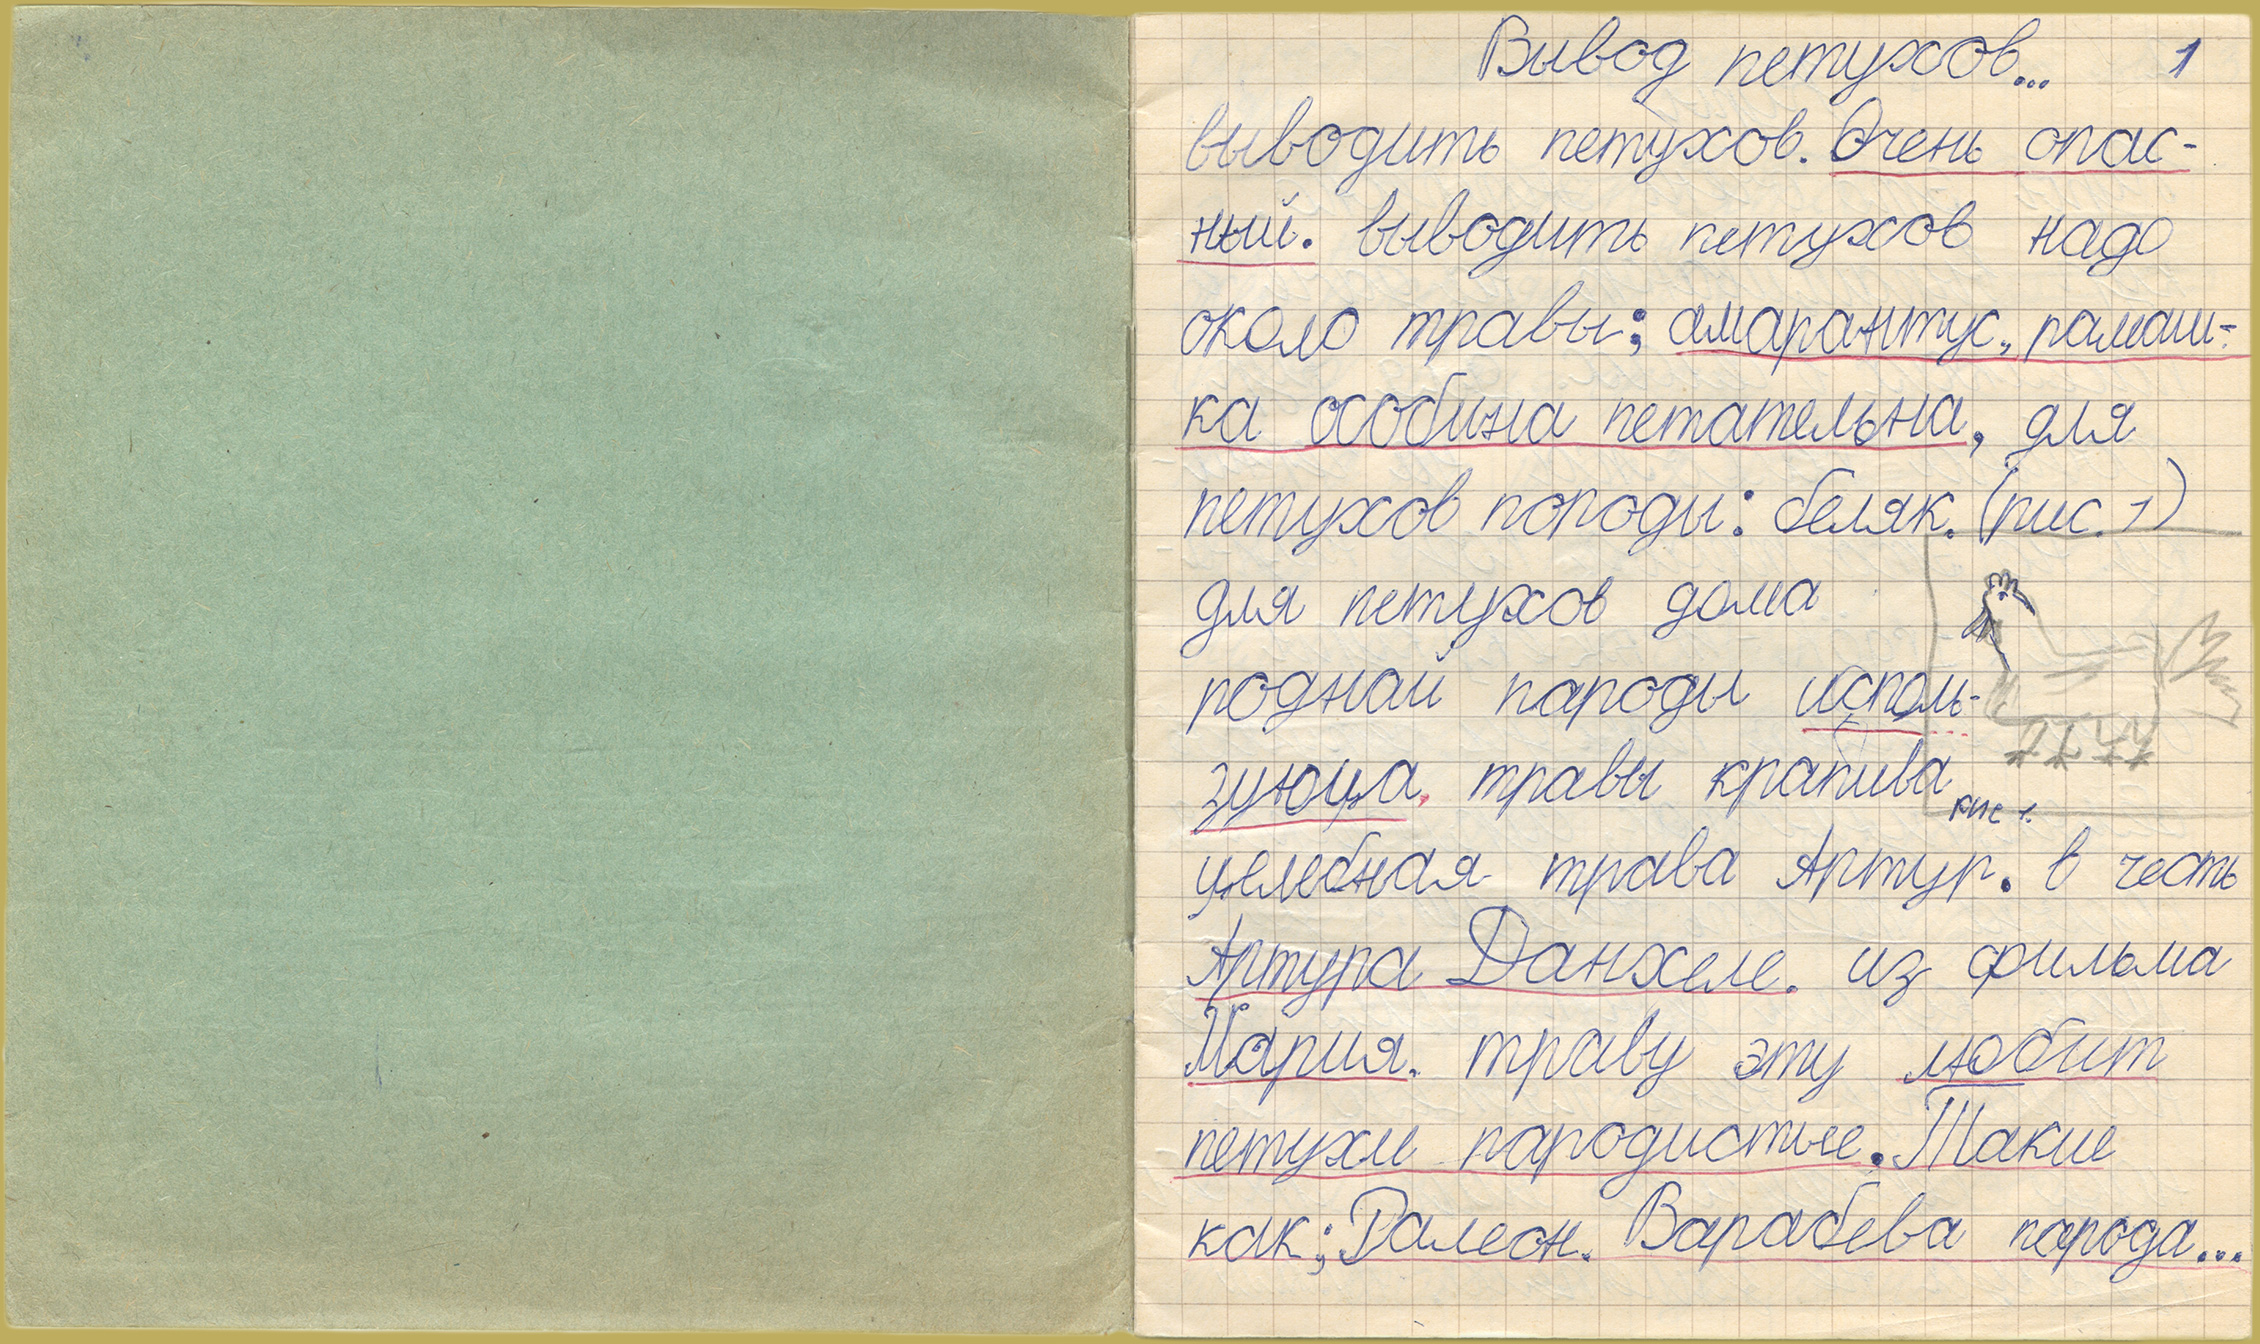 Вывод петухов... 1
выводить петухов. Очень опас-
ный. выводить петухов надо
около травы; амарантус, рамаш-
ка особина петательна, для
петухов породы: беляк. (рис. 1)
для петухов дома
роднай пароды исполь-
зующа, травы крапива
рис 1.
целебная трава Артур. в честь
Артура Данхеле. из фильма
Мария. траву эту любит
петухи пародистые. Такие
как; Далеон. Варабева парода...